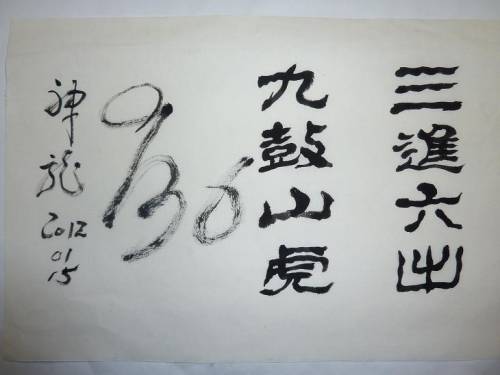 三進六出
九鼓山虎
936
神龍 2012
01
15